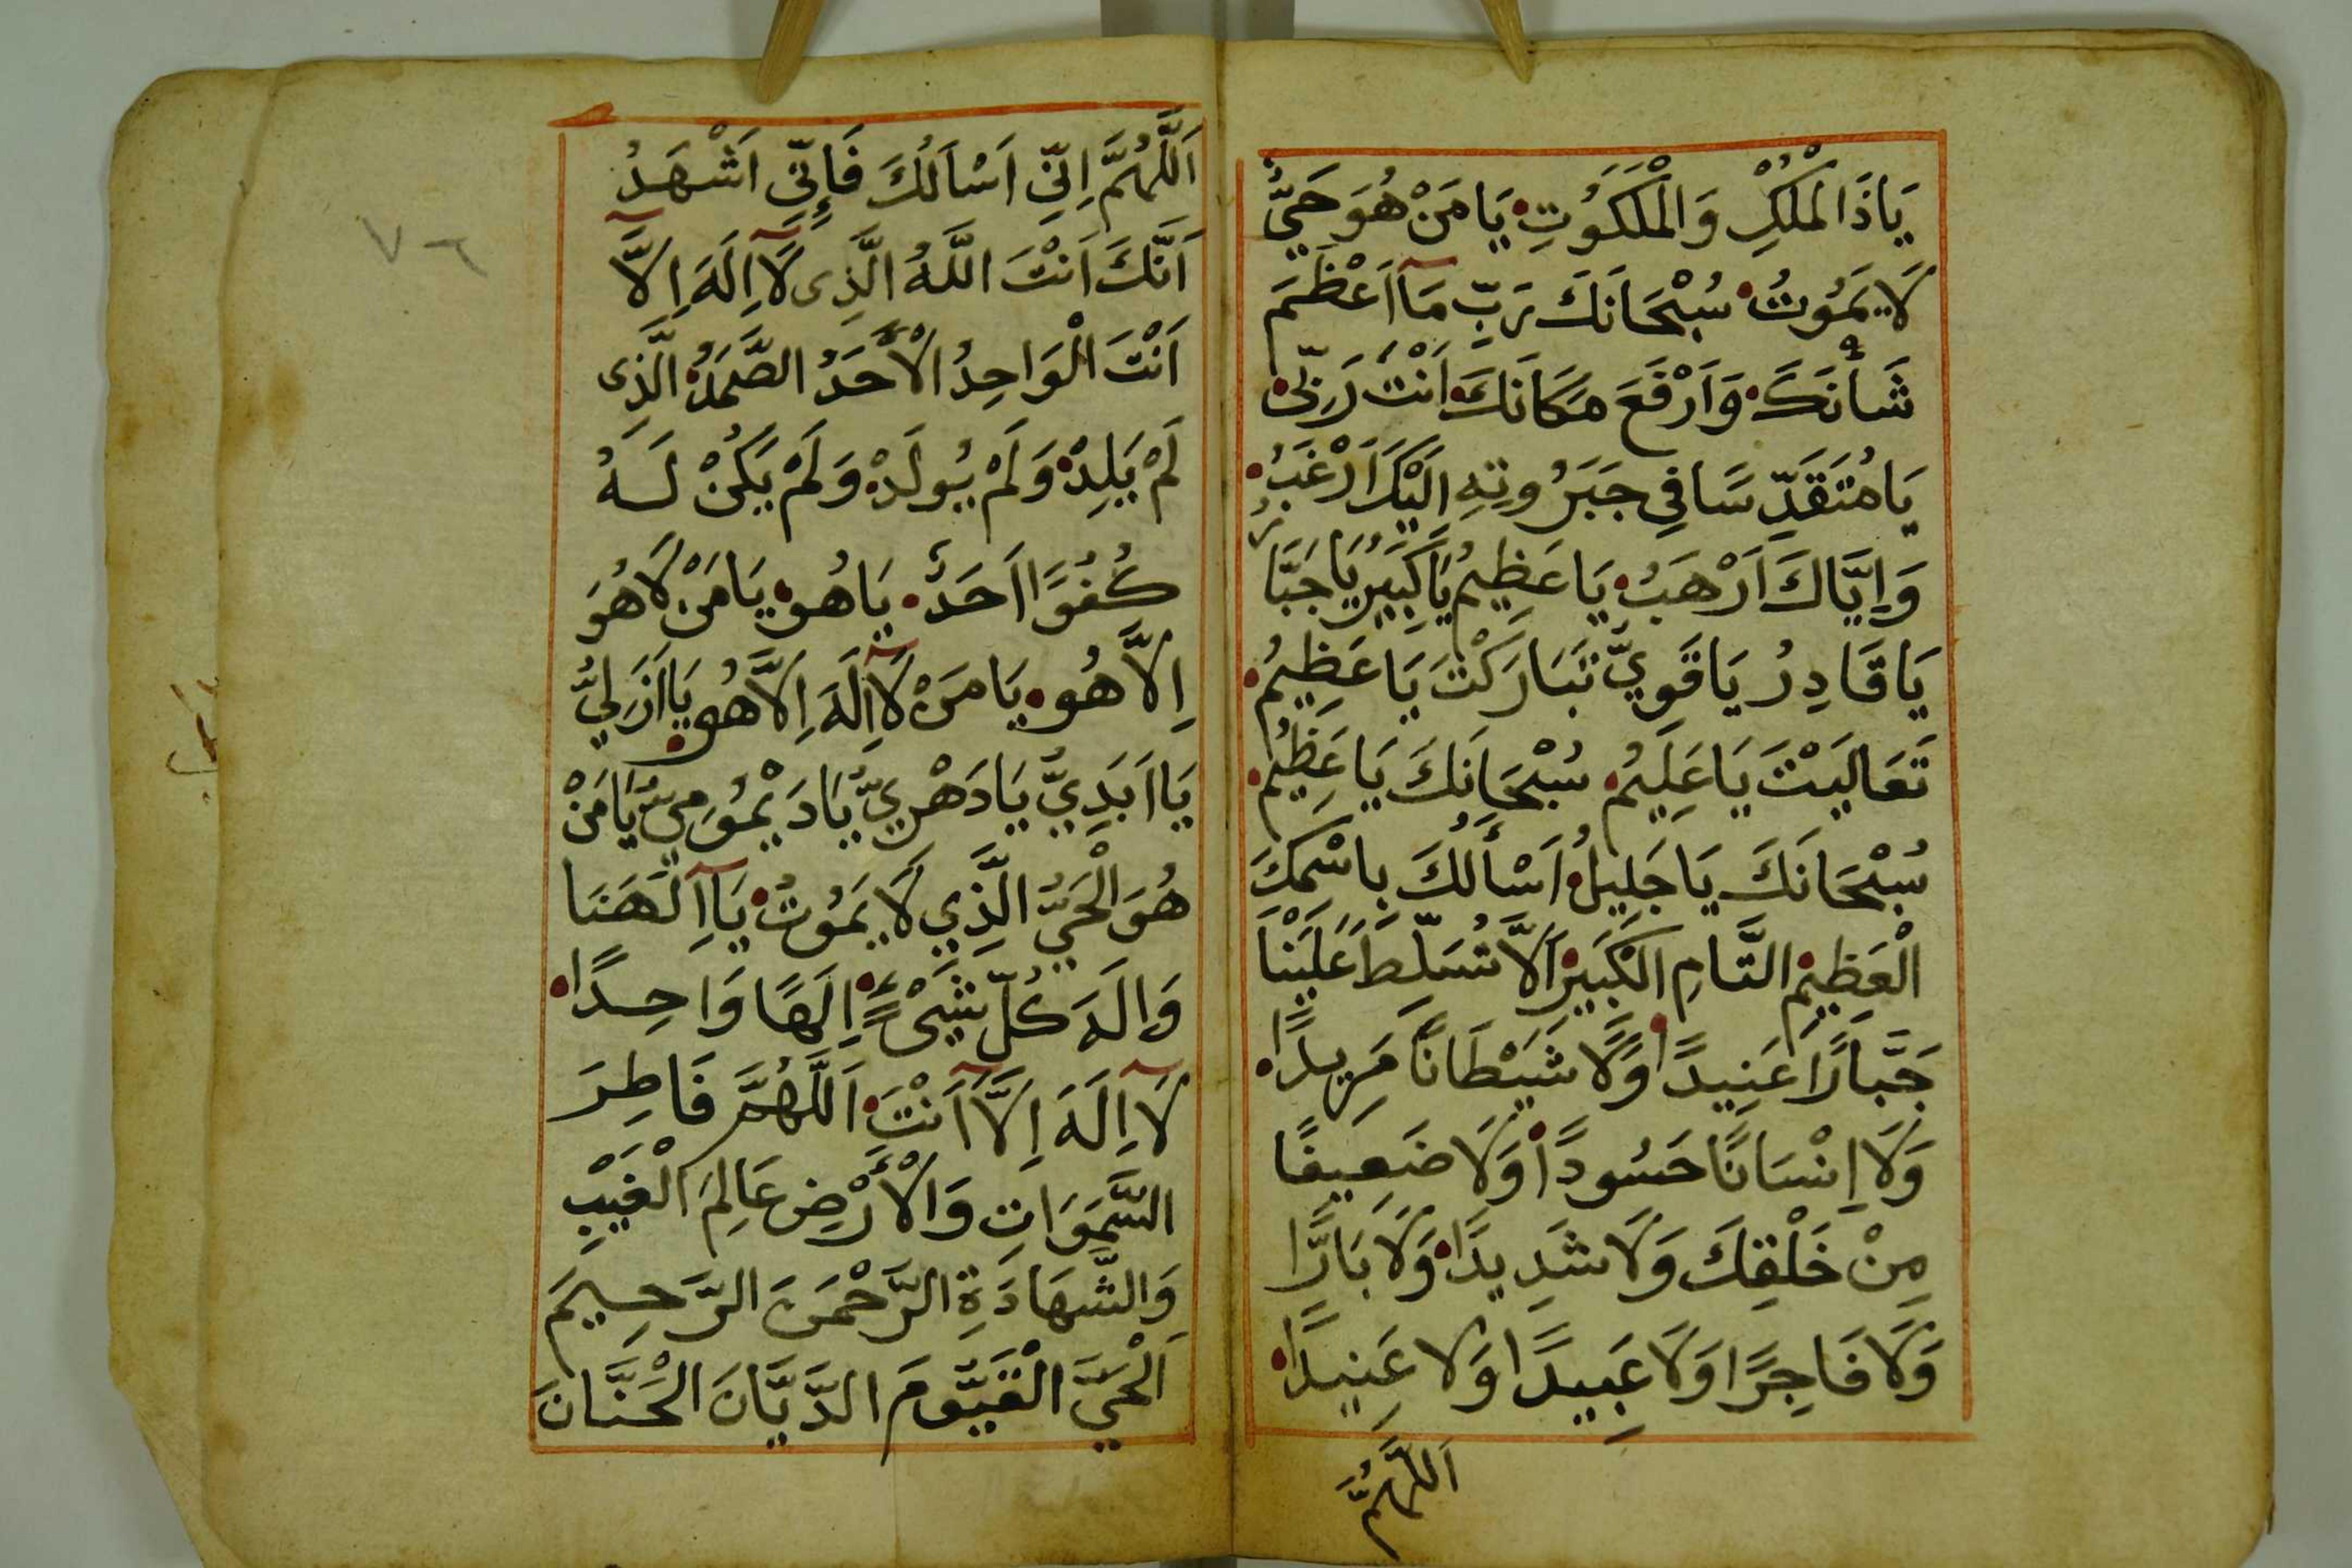 يَاذَا الْمُلْكِ وَالْمَلَكُوتِ يَا مَنْ هُوَ حَيٌّ
لَا يَمُوتُ سُبْحَانَكَ رَبِّ مَآ اَعْظَمَ
شَأْنَكَ وَاَرْفَعَ مَكَانَكَ اَنْتَ رَبِّى
يَا مُتَقَدِّسًا فِي جَبَرُوتِهِ اِلَيْكَ اَرْغَبُ
وَاِيَّاكَ اَرْهَبُ يَا عَظِيمُ يَا كَبِيرُ يَا جَبَّارُ
يَا قَادِرُ يَا قَوِيُّ تَبَارَكْتَ يَا عَظِيمُ
تَعَالَيْتَ يَا عَلِيمُ سُبْحَانَكَ يَا عَظِيمُ
سُبْحَانَكَ يَا جَلِيلُ اَسْأَلُكَ بِاسْمِكَ
الْعَظِيمِ التَّامِ الْكَبِيرِ اَلَّا تُسَلِّطَ عَلَيْنَا
جَبَّارًا عَنِيدًا وَلَا شَيْطَانًا مَرِيدًا
وَلَا اِنْسَانًا حَسُودًا وَلَا ضَعِيفًا
مِنْ خَلْقِكَ وَلَا شَدِيدًا وَلَا بَارًّا
وَلَا فَاجِرًا وَلَا عَبِيدًا وَلَا عَنِيدًا
اَللّٰهُمَّ
اَللّٰهُمَّ اِنِّي اَسْاَلُكَ فَاِنِّي اَشْهَدُ
اَنَّكَ اَنْتَ اللَّهُ الَّذِى لَآ اِلَهَ اِلَّآ
اَنْتَ الْوَاحِدُ الْأَحَدُ الصَّمَدُ الَّذِى
لَمْ يَلِدْ وَلَمْ يُولَدْ وَلَمْ يَكُنْ لَهُ
كُفُوًا اَحَدٌ يَا هُو يَا مَنْ لَا هُوَ
اِلَّا هُو يَا مَنْ لَآ اِلَهَ اِلَّا هُو يَا اَزَلِيُّ
يَا اَبَدِيُّ يَا دَهْرِيُّ يَا دَيْمُومِيُّ يَا مَنْ
هُوَ الْحَيُّ الَّذِي لَا يَمُوتُ يَآ اِلَهَنَا
وَاِلَهَ كُلِّ شَيْءٍ اِلَهًا وَاحِدًا
لَآ اِلَهَ اِلَّآ اَنْتَ اَللَّهُمَّ فَاطِرَ
السَّمَوَاتِ وَالْأَرْضِ عَالِمَ الْغَيْبِ
وَالشَّهَادَةِ الرَّحْمَنَ الرَّحِيمَ
اَلْحَيَّ الْقَيُّومَ الدَّيَّانَ الْحَنَّانَ
٧٦